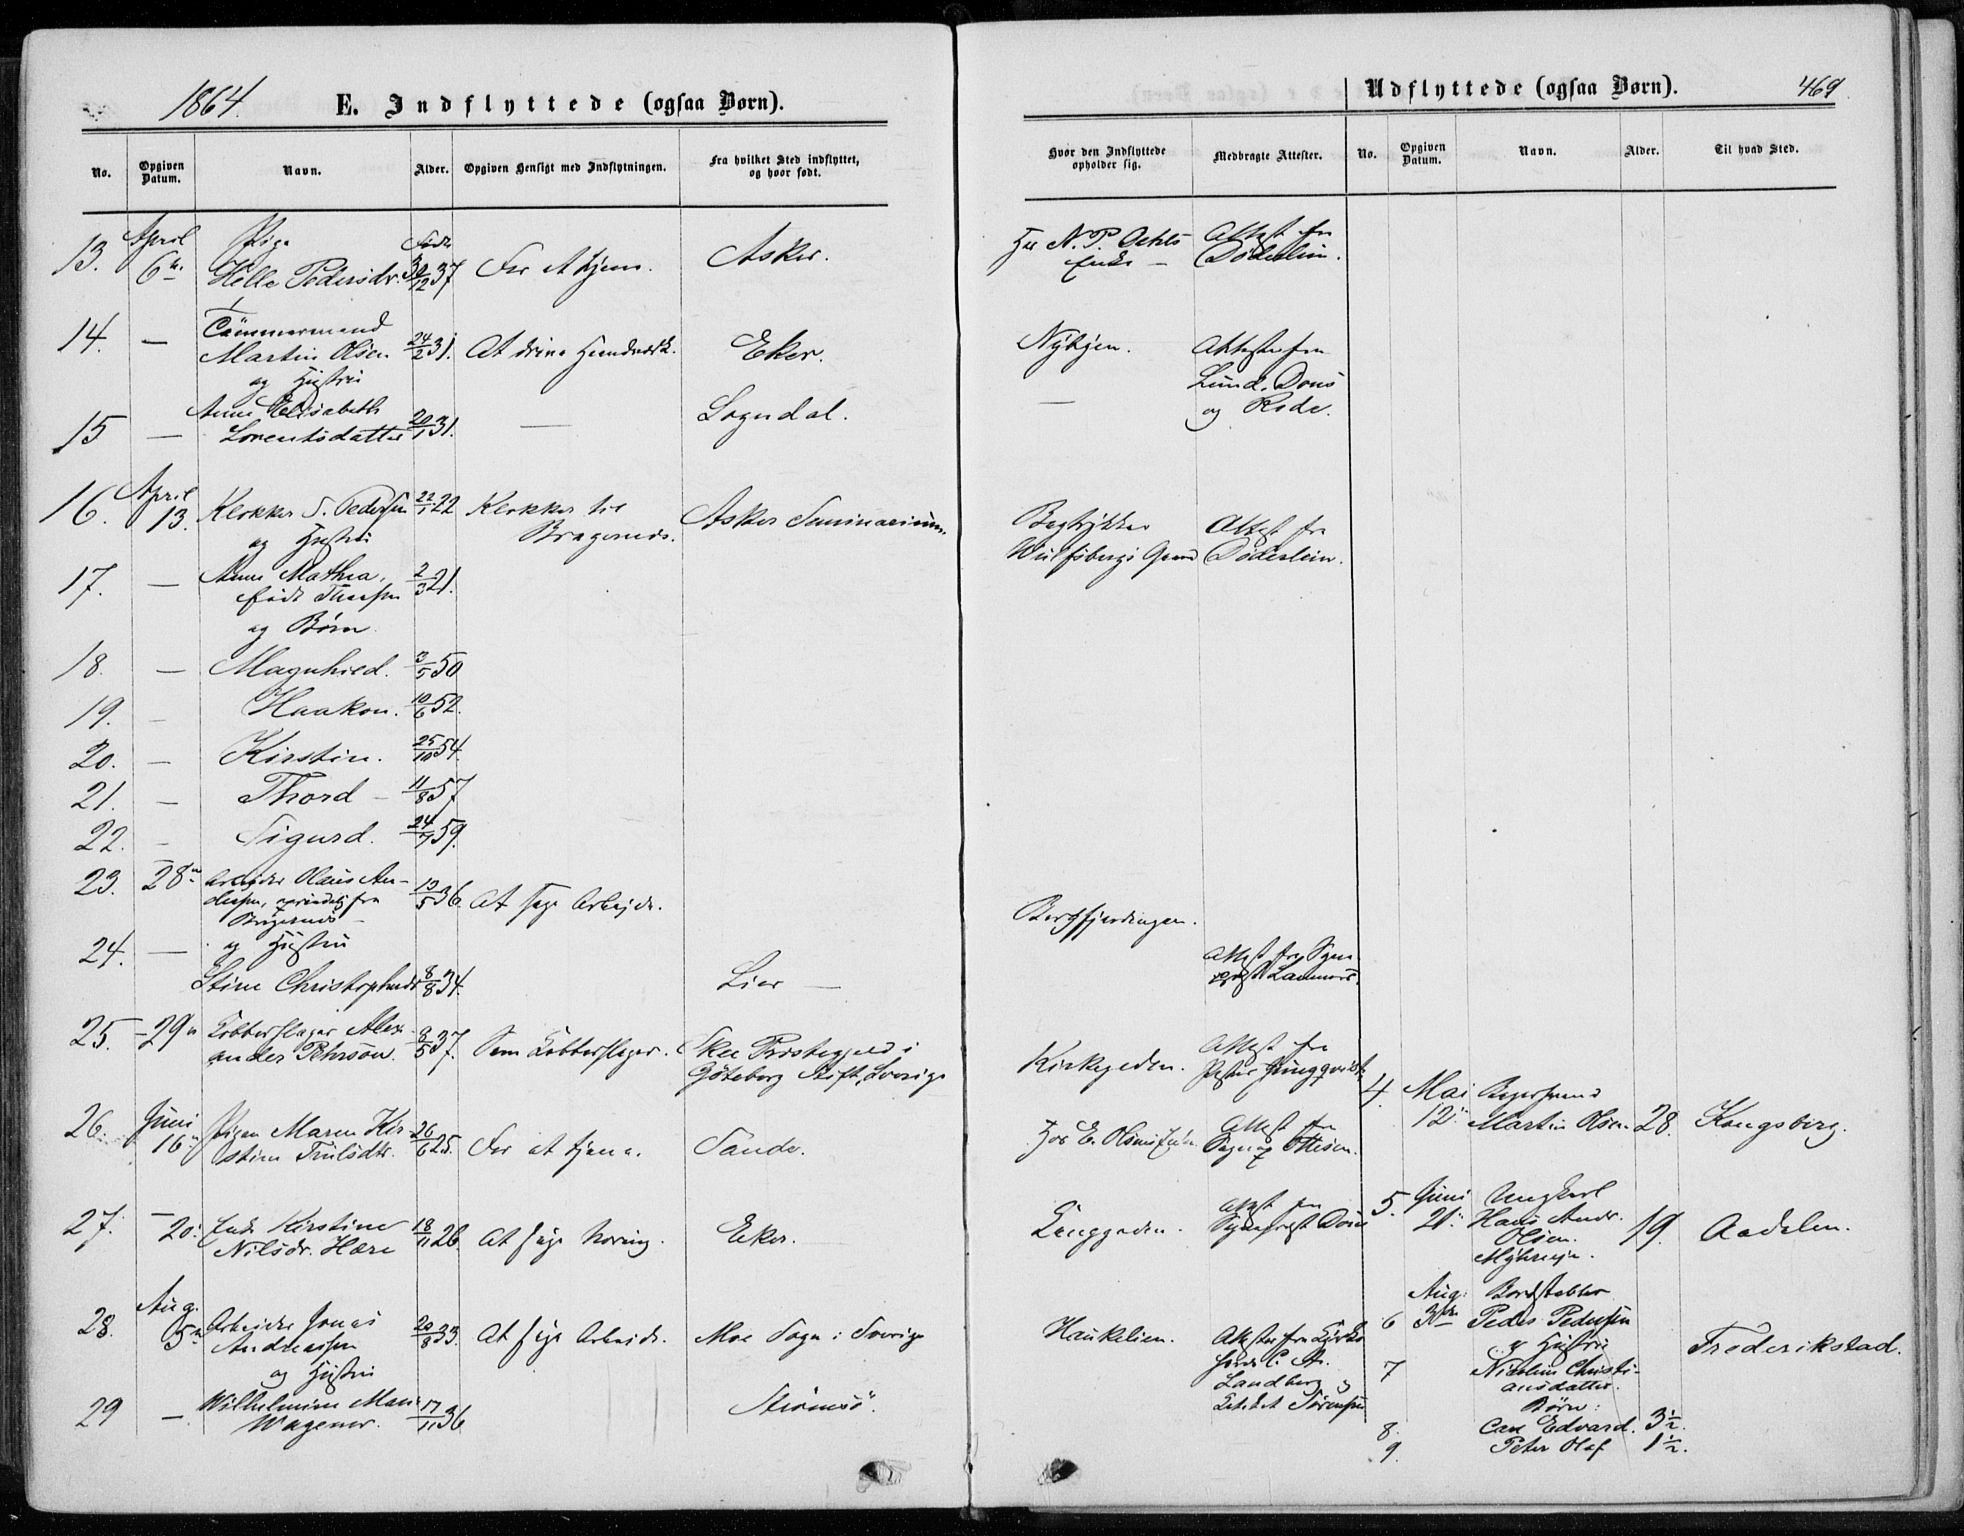 1864.
E. Indflyttede (ogsaa Børn).
No.
Opgiven Datum.
Navn.
Alder.
Opgiven Hensigt med Indflytningen.
Fra hvilket Sted indflyttet, og hvor født.
13. April 6te Pige Helle Pedersdr. 30/12 37 For at tjene. Asker.
14. — Tömmermand Martin Olsen 24/2 31. At drive Haandværk. Eker.
og Hustru
15 — Anne Elisabeth Lorentsdatter 20/1 31. — Sogndal.
16. April 13. Klokker S. Pedersen 22/1 22 Klokker til Bragernes. Asker Seminarium.
og Hustru
17. — Anne Mathea, født 2/3 21.
og Børn
18. — Magnhild. 3/5 50
19. — Haakon. 10/6 52.
20. — Kirstin. 25/10 54.
21. — Thord — 11/8 57
22. — Sigurd. 24/7 59.
23. 28de Arbeider Olaus An- 13/5 36. At søge Arbejde.
fra Bragernes —
24. — og Hustru
Stine 8/8 34. Lier —
25. — 29de Kobberslager Alex- ander Pehrsson. 9/5 37. Som Kobberslager. Præstegjeld i Göteborg Stift, Sverige
26. Juni 16de Pigen Maren Kir- stine Trulsdtr. 26/6 25. For at tjene. Sande.
27. — 20. Enke Kirstine Nilsdr. Hære 18/11 26. At søge Næring. Eker.
28. Aug. 5te Arbeider Jonas Andreassen 20/8 33. At søge Arbeide. Moe Sogn i Sverige
og Hustru
29 — Wilhelmine Marie Wagener. 17/11 36 Strømsö.
Udflyttede (ogsaa Børn).
469
Hvor den Indflyttede opholder sig.
Medbragte Attester.
No.
Opgiven Datum.
Navn.
Alder.
Til hvad Sted.
Hos N. P. Enke — Attest fra Døderlein.
Nybyen. Attester fra Lund, Dons og Rode.
—
Bogtrykker Wulfsbergs Gaard Attest fra Døderlein.
Bergfjerdingen.
Attest fra Sogne- præst
Kirkegaden. Attest fra Pastor
4. Mai 12te Martin Olsen 28. Kongsberg.
Hos E. Olsens Attest fra Sognep. Ottesen.
Langgaden. Attest fra Sognepræst Dons
5. Juni 21. Ungkarl Hans Andr. Olsen. 19. Aadalen.
Haukelien. Attester fra C. A. Landberg og Sørensen
6 Aug: 3die Bordstabler Peder Pedersen
og Hustru
Frederikstad.
7 Nicoline Christi- ansdatter.
Børn:
8. Carl Edvard. 3 1/2.
9. Peter Olaf 1 1/2.